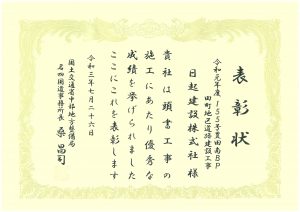 表彰状
令和元年度 155号豊田南BP
田町地区道路建設工事
日起建設株式会社 様
貴社は頭書工事の
施工にあたり優秀な
成績を挙げられました
ここにこれを表彰します
令和三年七月二十六日
国土交通省中部地方整備局
名四国道事務所長 桑 昌司